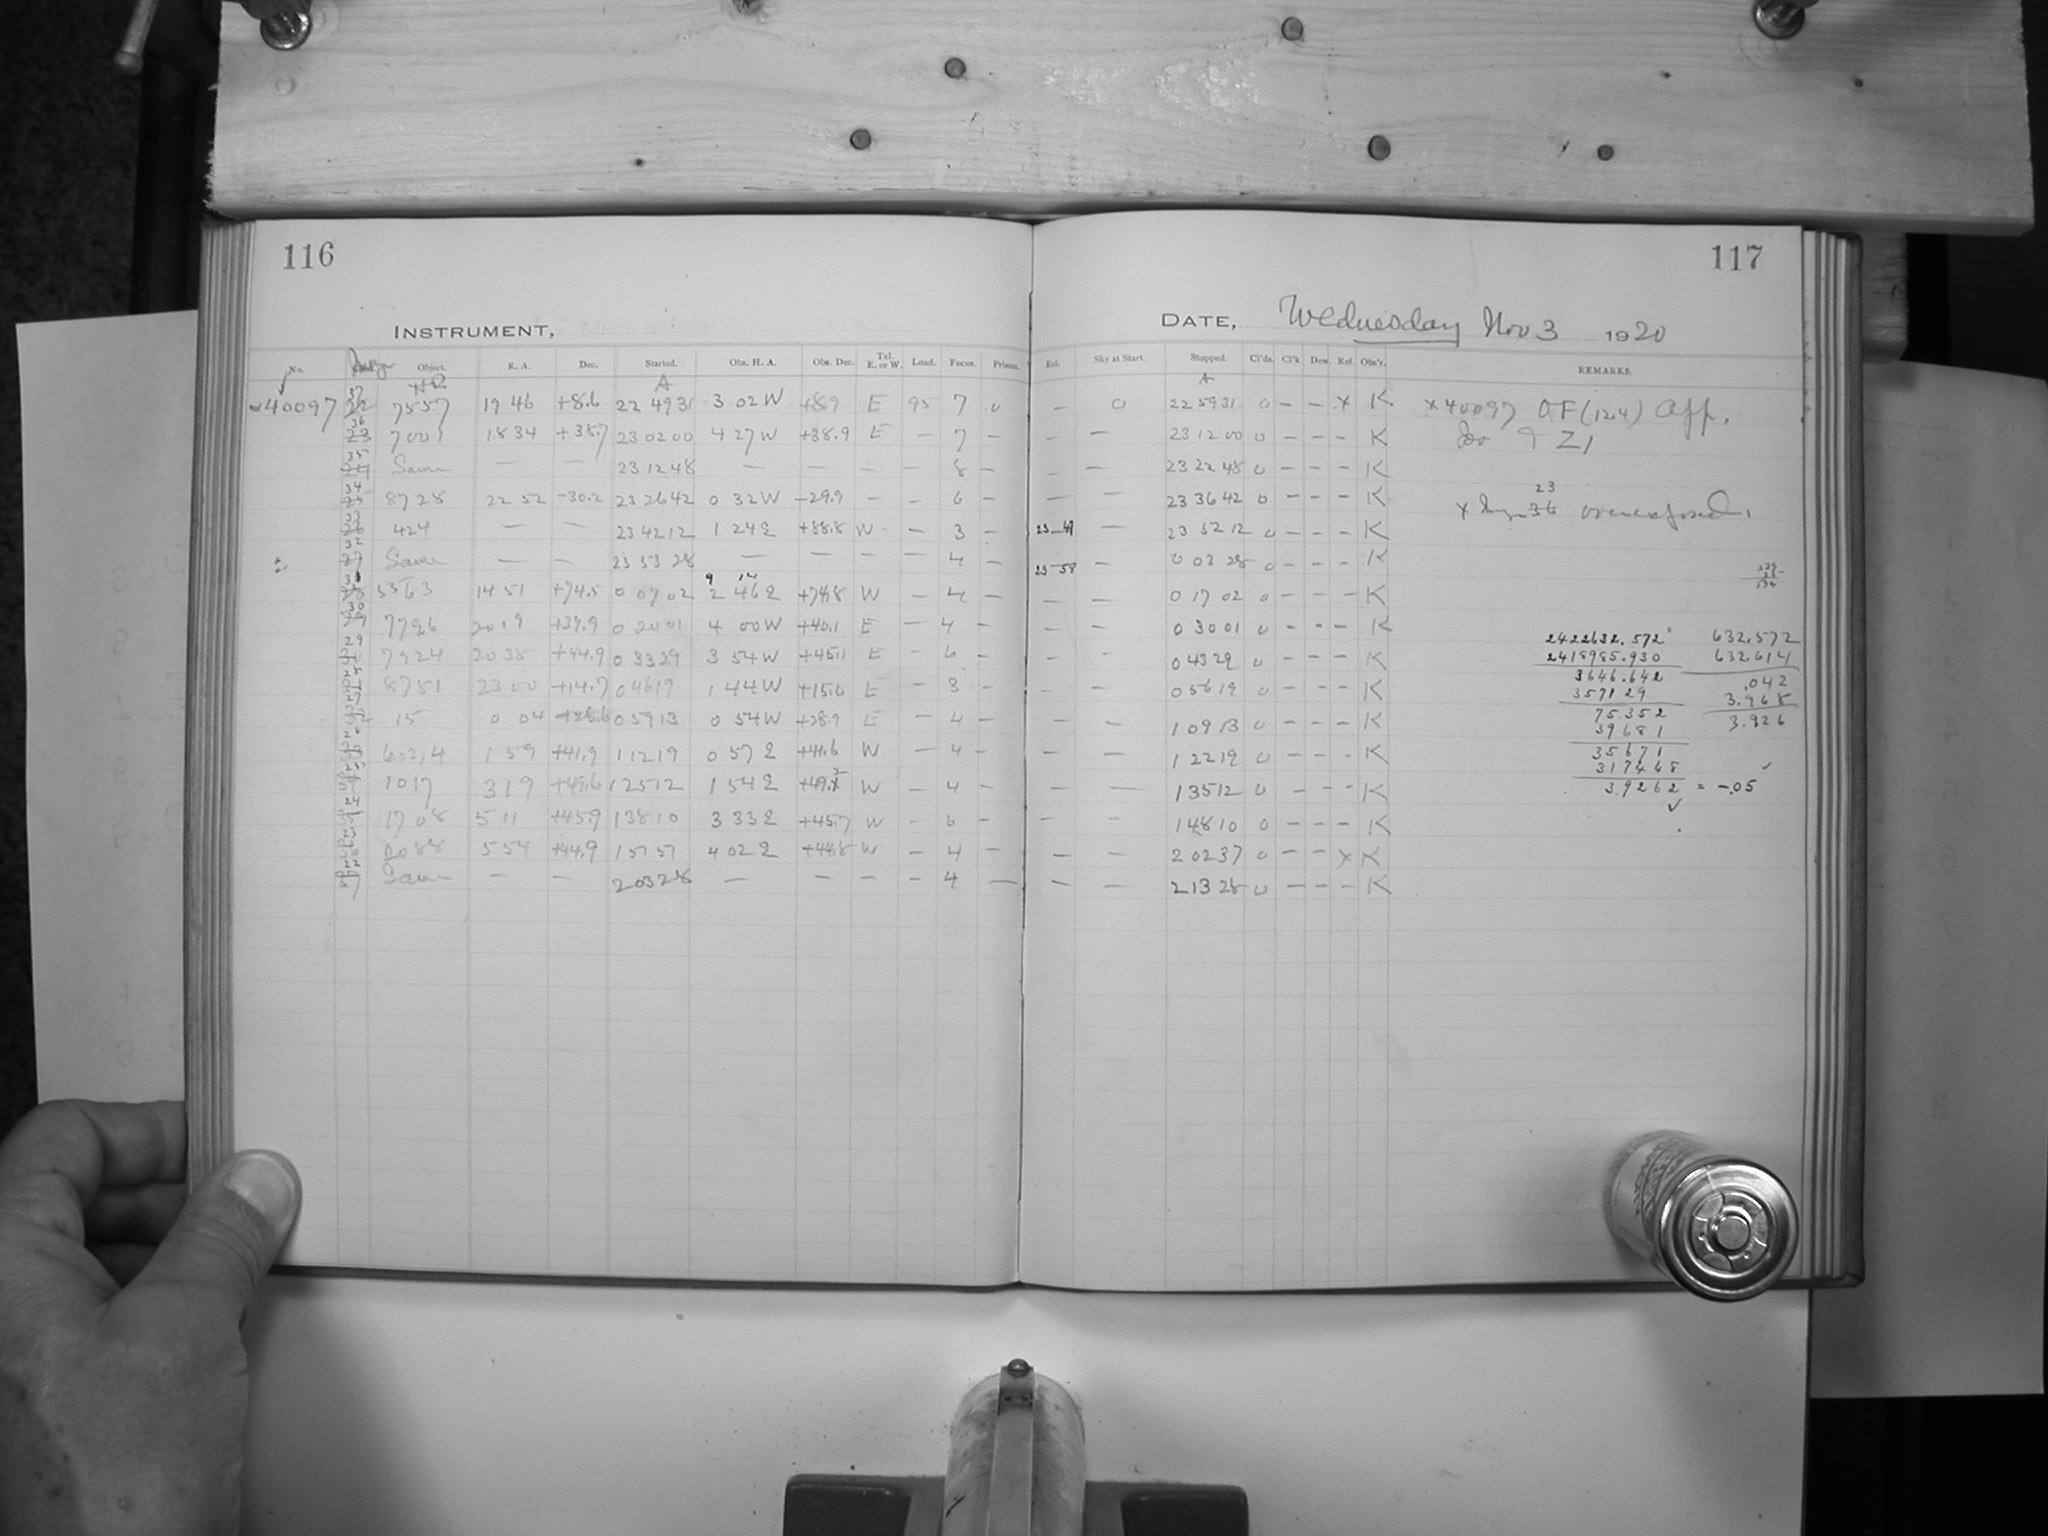 116
INSTRUMENT,
No. Object. R. A. Dec. Started. Obs. H. A. Obs. Dec. Tel. E. or W. Load. Focus. Prisms.
A
40097 37 7557 19 46 +8.6 22 49 31 3 02 W +8.9 E 95 7 0
36 7001 18 34 +38.7 23 02 00 4 27 W +38.9 E — 7 —
35 Same — — 23 12 48 — — — — 8 —
34 8728 22 52 -30.2 23 26 42 0 32 W -29.9 — — 6 —
33 424 — — 23 42 12 1 24 E +88.8 W - 3 -
32 Same — — 23 53 28 — — — — 4 —
9 14
31 5563 14 51 +74.5 0 07 02 2 46 E +74.8 W — 4 —
30 7796 20 19 +39.9 0 20 01 4 00 W +40.1 E — 4 -
29 7924 20 38 +44.9 0 33 29 3 54 W +45.1 E — 6 -
8781 23 00 +14.7 0 46 19 1 44 W +15.0 E — 3 —
15 0 04 +28.6 0 59 13 0 54 W +28.9 E — 4 —
603,4 1 59 +41.9 1 12 19 0 57 E +41.6 W — 4 —
1017 3 19 +49.6 1 25 12 1 54 E W — 4 —
24 1708 5 11 +45.9 1 38 10 3 33 E +45.7 W — 6 -
23 2088 5 54 +44.9 4 02 E +44.8 W — 4 —
22 Same — — 2 03 28 — — — — 4 —
117
DATE, Wednesday Nov 3 1920
Sky at Start. Stopped. Cl'ds. Cl'k Dew. Ref. Obs'r. REMARKS.
A
— 0 22 59 31 0 — — x K x 40097 OF (124) Aff.
— — 23 12 00 0 — — — K Do 9 Z1
— — 23 22 48 0 — — — K
— — 23 36 42 0 - - - K
23
x 36 overexposed.
23—49 — 23 52 12 0 - - - K
23-58 — 0 03 28 0 - - - K
— — 0 17 02 0 - - - K
— — 0 30 01 0 - - - K
— — 0 43 29 0 - - - K
- — 0 56 19 0 - - - K
- — 1 09 13 0 - - - K
— — 1 22 19 0 - - - K
— — 1 35 12 0 - - - K
1 48 10 0 - - - K
— — 2 02 37 0 — — x K
— — 2 13 28 0 — — - K
2422632.572 632.572
2418985.930 632.614
3646.642 .042
357129 3.968
75.352 3.926
39681
35671
317448
3.9262 = -.05